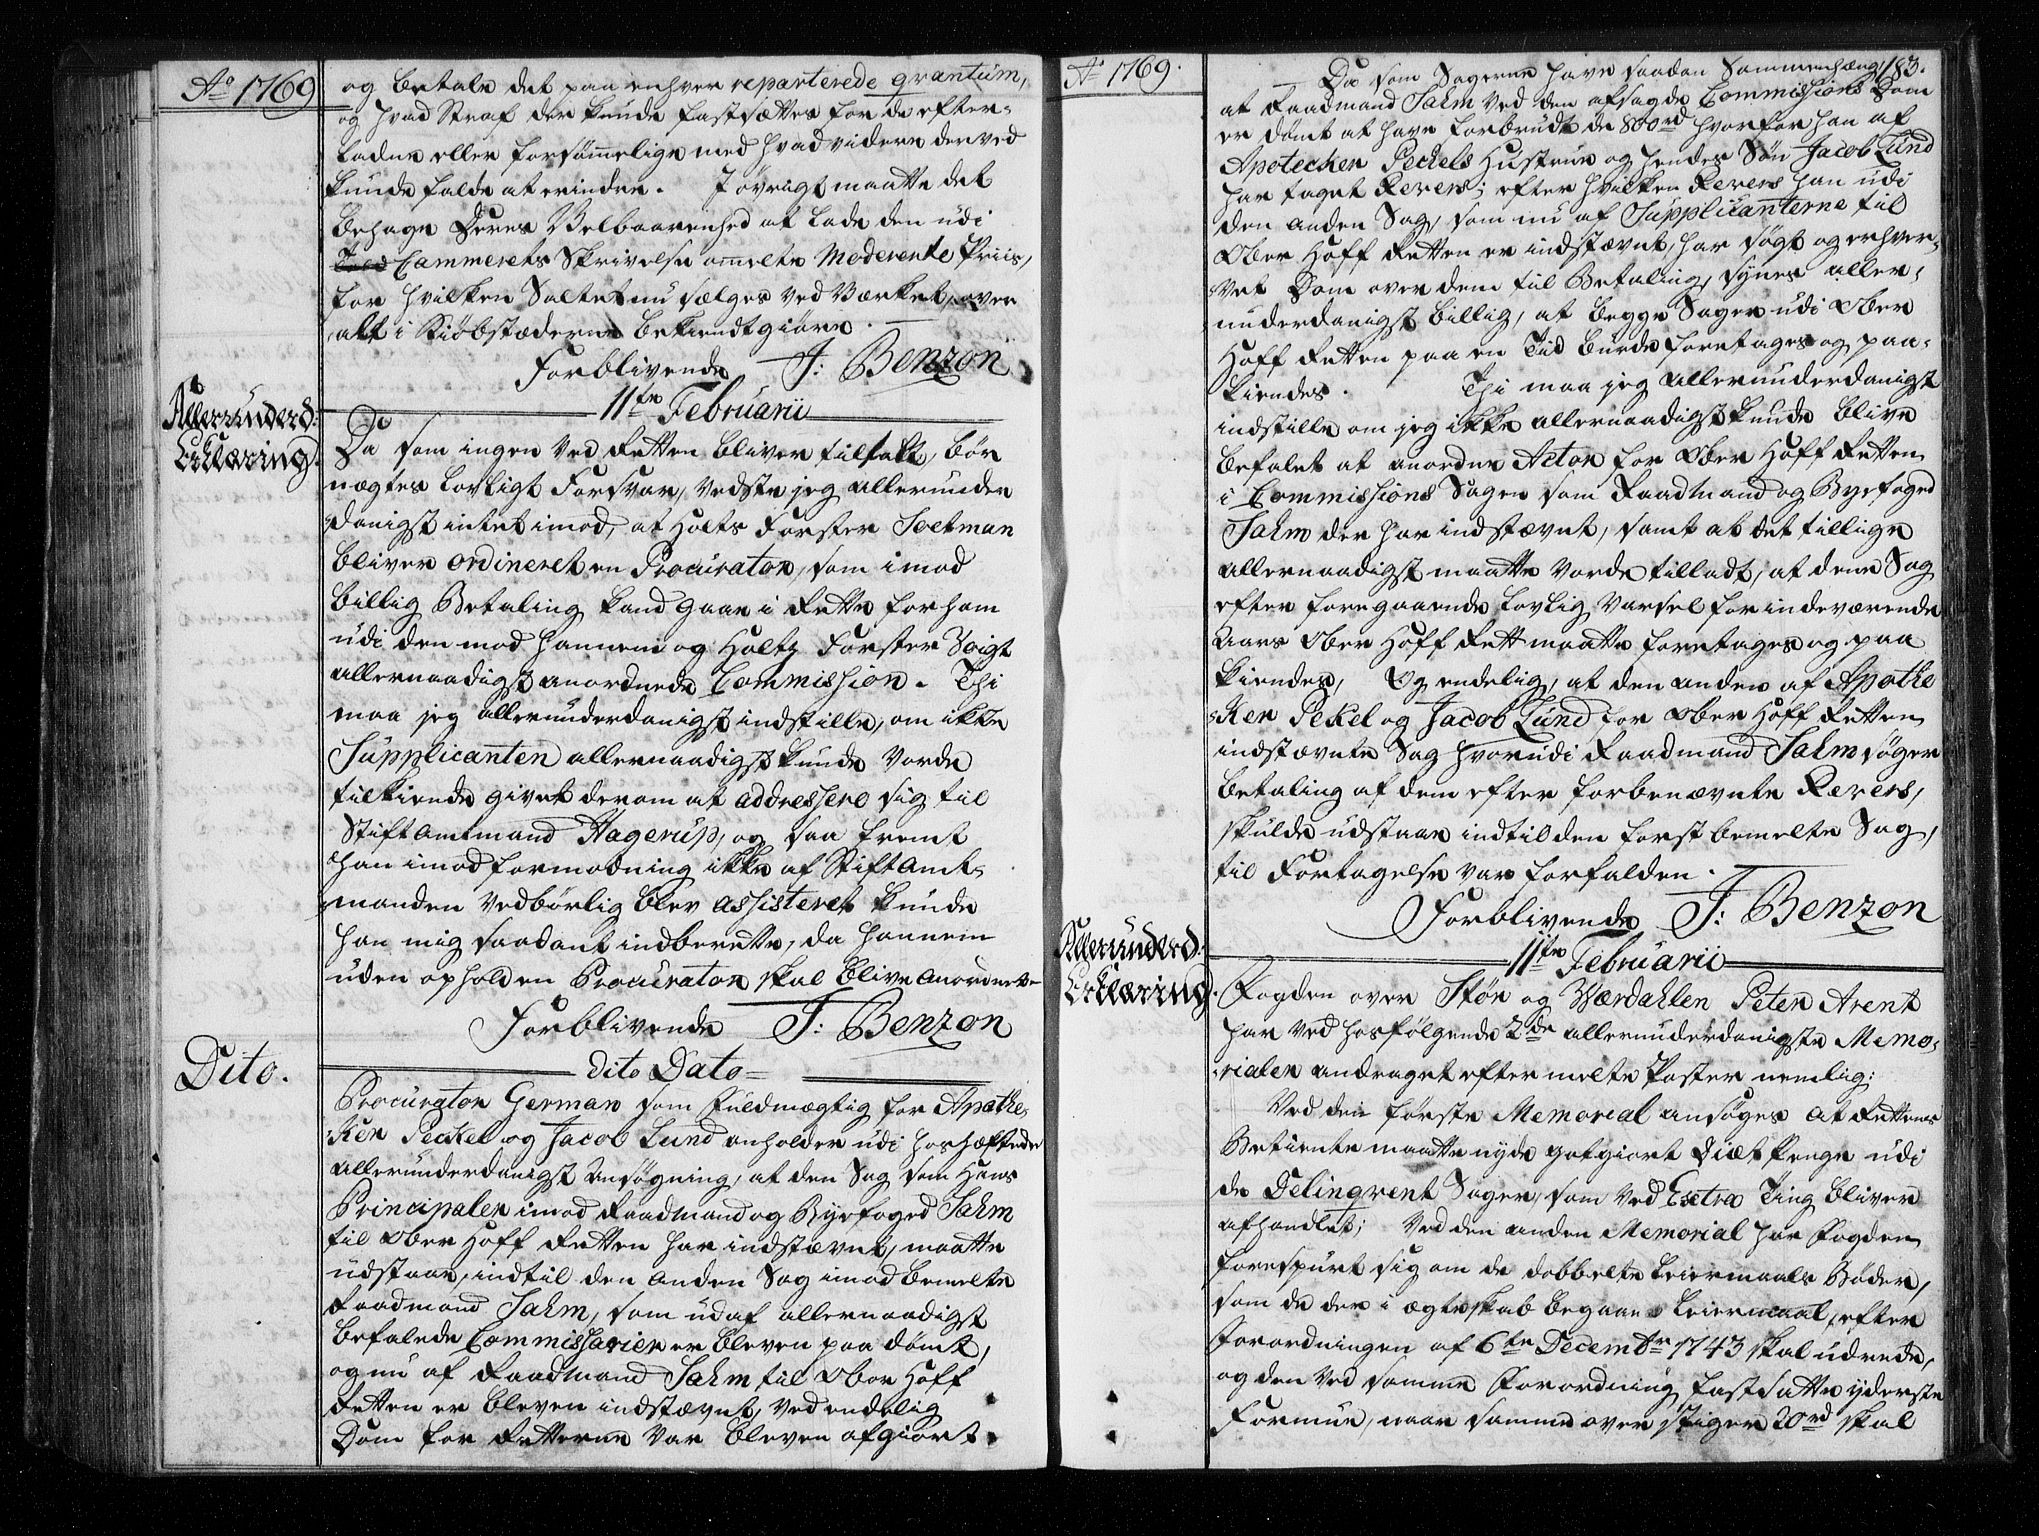 Ao 1769
og betale det paa enhver reparterede qvantum,
og hvad Straf der kunde fastsættes for de efter-
ladne eller forsømmelige med hvad videre derved
kunde falde at erindre. I øvrigt maatte det
behage Deres Velbaarenhed at lade den udi
Cammerets Skrivelse ommelte Moderente Priis,
for hvilken Saltet nu sælges ved Værket, over
alt i Kiøbstæderne bekiendtgiøre.
Forblivende J: Benzon
11te Februarii
Allerunderd:
Erklæring.
Da som ingen ved Retten bliver tiltalt, bør
nægtes lovligt Forsvar, vedste jeg allerunder
danigst intet imod, at Holts Forster Soetman
bliver ordineret en Procurator, som imod
billig Betaling kand gaae i Rette for ham
udi den mod hannem og Holtz Forster Voigt
allernaadigst anordnede Commission. Thi
maa jeg allerunderdanigst indstille, om ikke
Supplicanten allernaadigst kunde vorde
tilkiende givet derom at addressere sig til
Stiftamtmand Hagerup, og saa fremt
han imod formodning ikke af Stiftamt-
manden vedbørlig blev assisteret kunde
han mig saadant indberette, da hannem
uden ophold en Procurator skal blive anordnet
Forblivende J: Benzon
Dito Dato
Dito.
Procurator German som Fuldmægtig for Apothe-
ker Peckel og Jacob Lund anholder udi hoshæftede
allerunderdanigst Ansøgning, at den Sag som Hans
Principaler imod Raadmand og Byefoged Sahm
til Ober Hoff Retten har indstævnt, maatte
udstaae, indtil den anden Sag imod bemelte
Raadmand Sahm, som udaf allernaadigst
befalede Commissarier er bleven paa dømt,
og nu af Raadmand Sahm til Ober Hoff
Retten er bleven indstævnt, ved endelig
Dom for Retterne var bleven afgiort.
Ao 1769.
183.
Da som Sagerne have saadan Sammenhæng,
at Raadmand Sahm ved den afsagde Commissions Dom
er dømt at have forbrudt de 800rd hvorfor han af
Apotecker Peckels Hustrue og hendes Søn Jacob Lund
har taget Revers; efter hvilken Revers han udi
den anden Sag, som nu af Supplicanterne til
Ober Hoff Retten er indstævnt, har søgt og erhver-
vet Dom over dem til Betaling, synes aller-
underdanigst billig, at begge Sager udi Ober
Hoff Retten paa en Tiid burde foretages og paa-
kiendes. Thi maa jeg allerunderdanigst
indstille om jeg ikke allernaadigst kunde blive
befalet at anordne Actor for Ober Hoff Retten
i Commissions Sagen som Raadmand og Byefoged
Sahm der har indstævnt, samt at det tillige
allernaadigst maatte vorde tilladt, at denne Sag
efter foregaaende lovlig Varsel for indeværende
Aars Ober Hoff Rett maatte foretages og paa
kiendes, Og endelig, at den anden af Apothe
ker Pekel og Jacob Lund for Ober Hoff Retten
indstævnte Sag hvorudi Raadmand Sahm søger
betaling af dem efter forbenævnte Revers,
skulde udstaae indtil den først bemelte Sag,
til Foretagelse var forfalden.
Forblivende J: Benzon
11te Februarii
Allerunderd:
Erklæring.
Fogden over Stør og Værdahlen Peter Arent
har ved hosfølgende 2de allerunderdanigste Memo-
rialer andraget efter melte Poster nemlig:
Ved den første Memorial ansøges at Rettens
Betiente maatte nyde godtgiort Diæt Penge udi
de Delinqvent Sager, som ved Extra Ting bliver
afhandlet; Ved den anden Memorial har Fogden
forespurt sig om de dobbelte Leiermaals Bøder,
som de der i ægteskab begaaer Leiermaal, efter
Forordningen af 6te Decembr 1743 skal udrede,
og den ved samme Forordning fastsatte yderste
Formue, naar samme over stiger 20rd skal